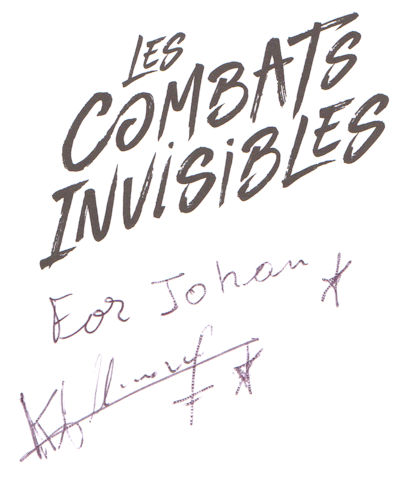 LES
COMBATS
INVISIBLES
For Johan